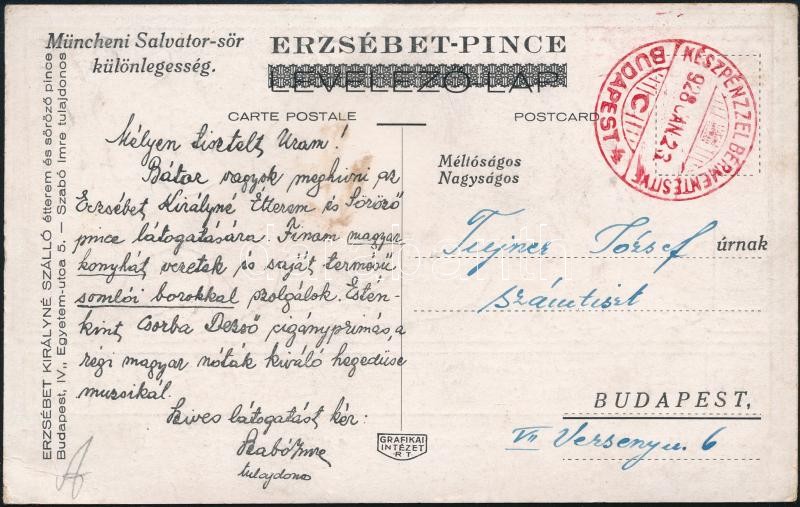 Müncheni Salvator-sör
különlegesség.
ERZSÉBET-PINCE
LEVELEZŐ-LAP
CARTE POSTALE
POSTCARD
KÉSZPÉNZZEL BÉRMENTESITVE
BUDAPEST
928 JAN 23
C
ERZSÉBET KIRÁLYNÉ SZÁLLÓ étterem és söröző pince
Budapest, IV., Egyetem-utca 5. — Szabó Imre tulajdonos
Mélyen Tisztelt Uram!
Bátor vagyok meghivni az
Erzsébet Királyné Étterem és Söröző
pince látogatására. Finom magyar
konyhát vezetek és saját termésű
somlói borokkal szolgálok. Estén-
kint Csorba Dezső cigányprimás, a
régi magyar nóták kiváló hegedüse
muzsikál.
Szives látogatást kér:
Szabó Imre
tulajdonos
Méltóságos
Nagyságos
József úrnak
Számtiszt
BUDAPEST,
VII Versenyu. 6
GRAFIKAI
INTÉZET
R T